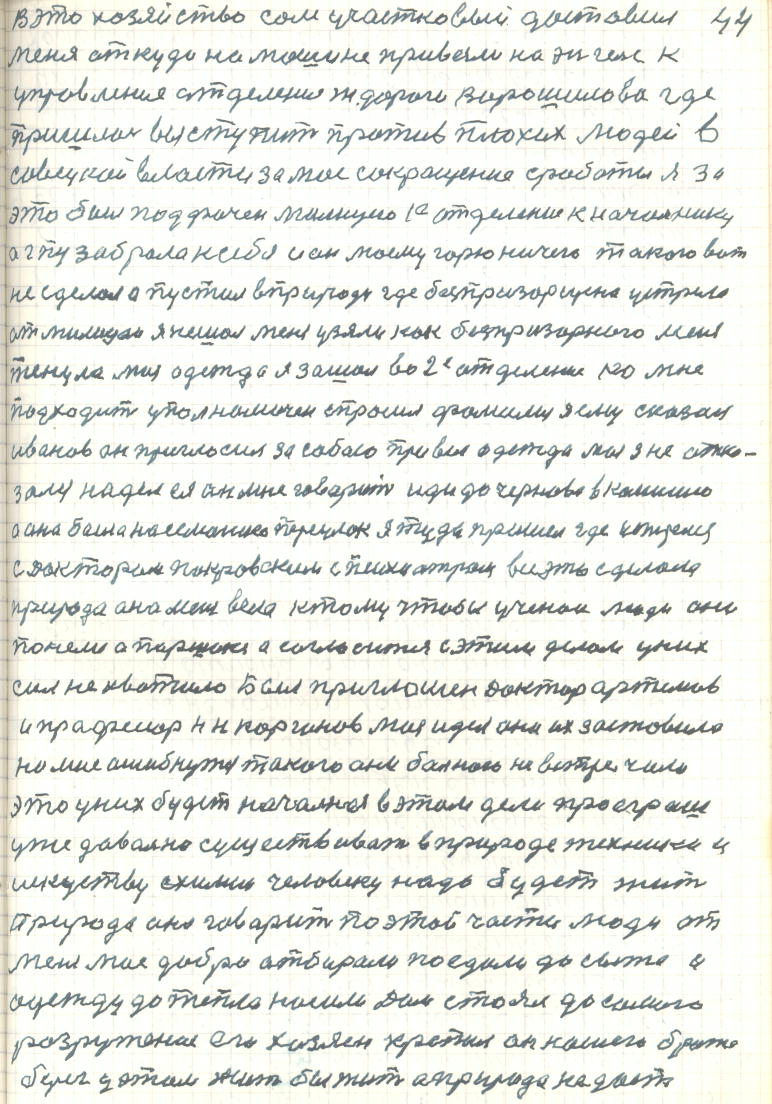 в это хозяйство сам участковый доставил 44
меня откуда на машине привезли на энгелс к
управления отделение ж дороги Ворошилова где
пришлос выступит против плохих людей в
совецкой власти за мое сокращение с работы я за
это был подучен милицию 1е отделение к начальнику
а гпу забрала к себя и он моему горю ничего такого вот
не сделал а пустил в природу где безпризорщена устрело
от милиции я не шол меня узяли как безпризорного меня
тенула моя одежда я зашол во 2е отделение ко мне
подходит уполномочен спросил фамилия я ему сказал
иванов он пригласил за собою привел одежда моя я не отка-
залу наделся он мне говорит иди до чернова в комисию
а она была на семашко переулок я туда пришел где
с доктором покровским с психиатром все это сделала
природа она меня вела к тому чтобы ученои люди они
понели а порщика а согласится с этим делом у них
сил не хватило Был приглашен доктор артемов
и прафесор Н Н корганов моя идея она их заставила
на мне ошибнутся такого они болного не встречали
это у них будет началноя в этом деле проеграш
уже давално существовал в природе техники и
искуству с химии человеку надо будет жит
Природа она говорит по этой части люди от
меня мае добро отбирали поедали до сыта и
одежду до тепла носили Дом стоял до самого
розрушение его хозяен кропил он нашего брата
берег у этом жит бы жит а природа не даст